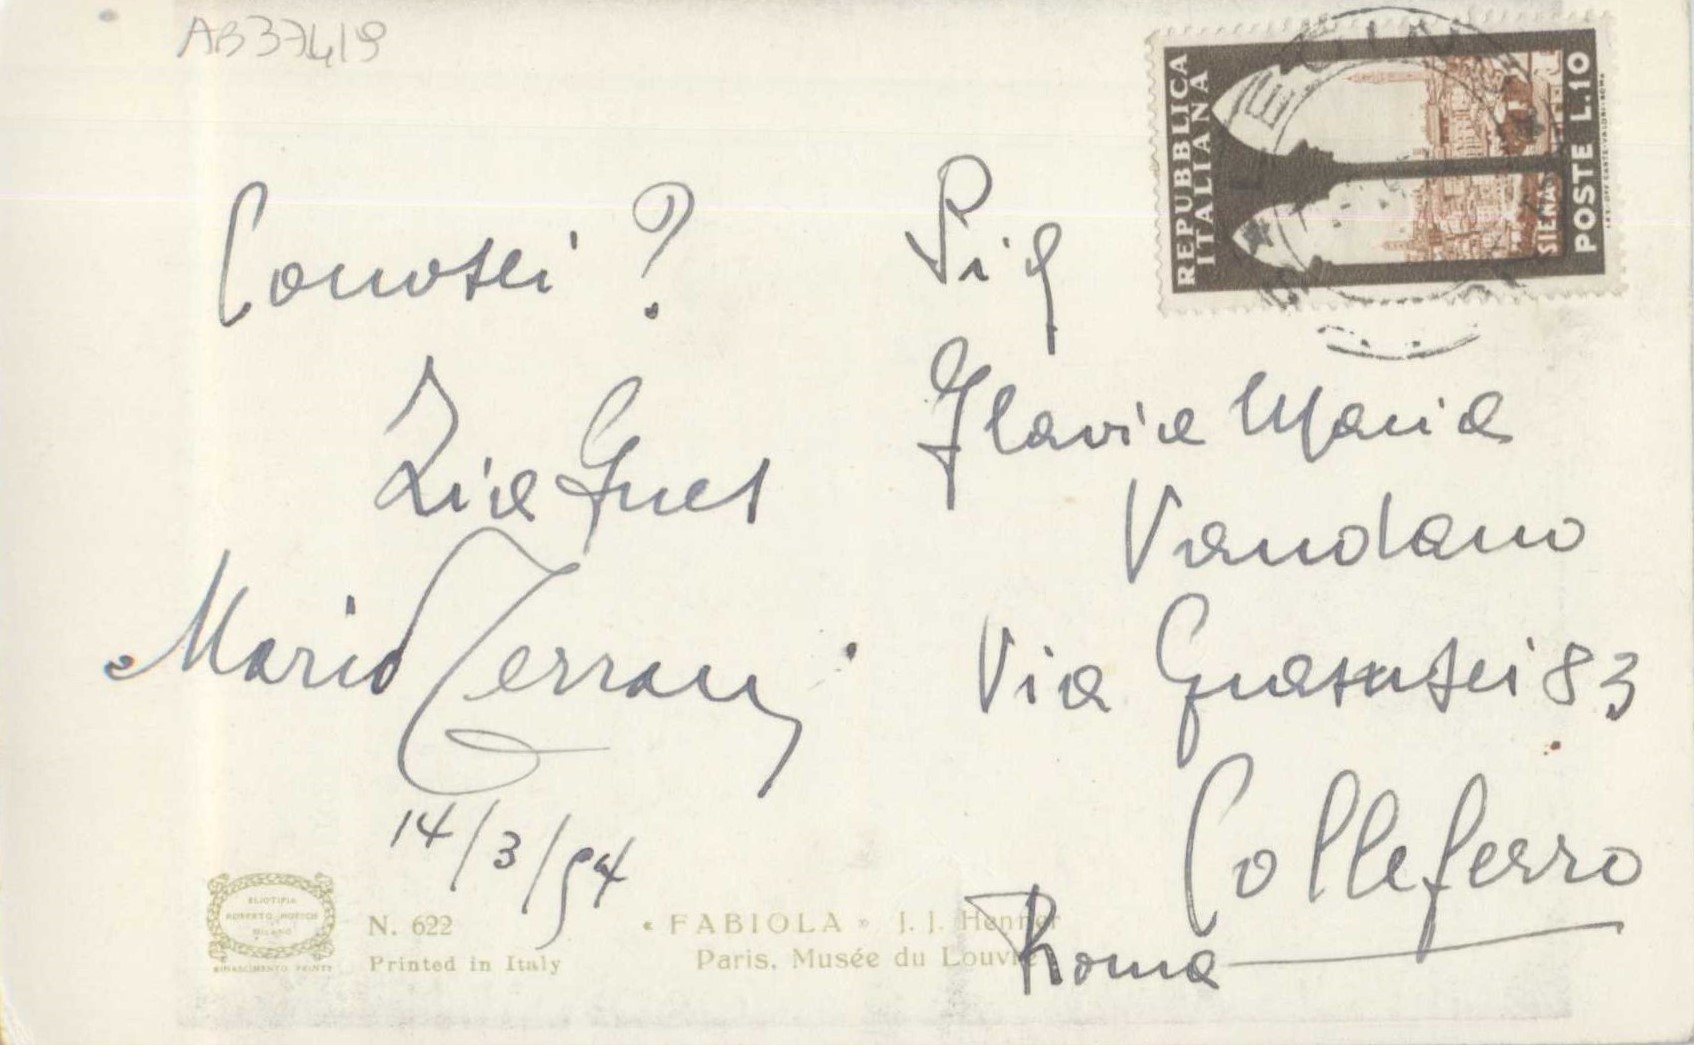 AB37419
Conosci ?
Zia Ines
Mario
14/3/54
Sig
Flavia Maria
Via 83
Colleferro
Roma
REPUBBLICA
ITALIANA
SIENA
POSTE L.10
ELIOTIPIA
MILANO
RINASCIMENTO PRINTS
N. 622
Printed in Italy
« FABIOLA » J. J. Henner
Paris. Musée du Louvre